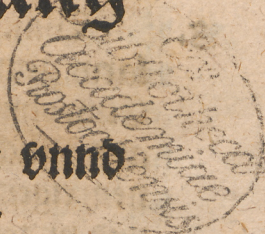 ung
Ex
Bibliotheca
Academiae
Rostochiensis
vnnd